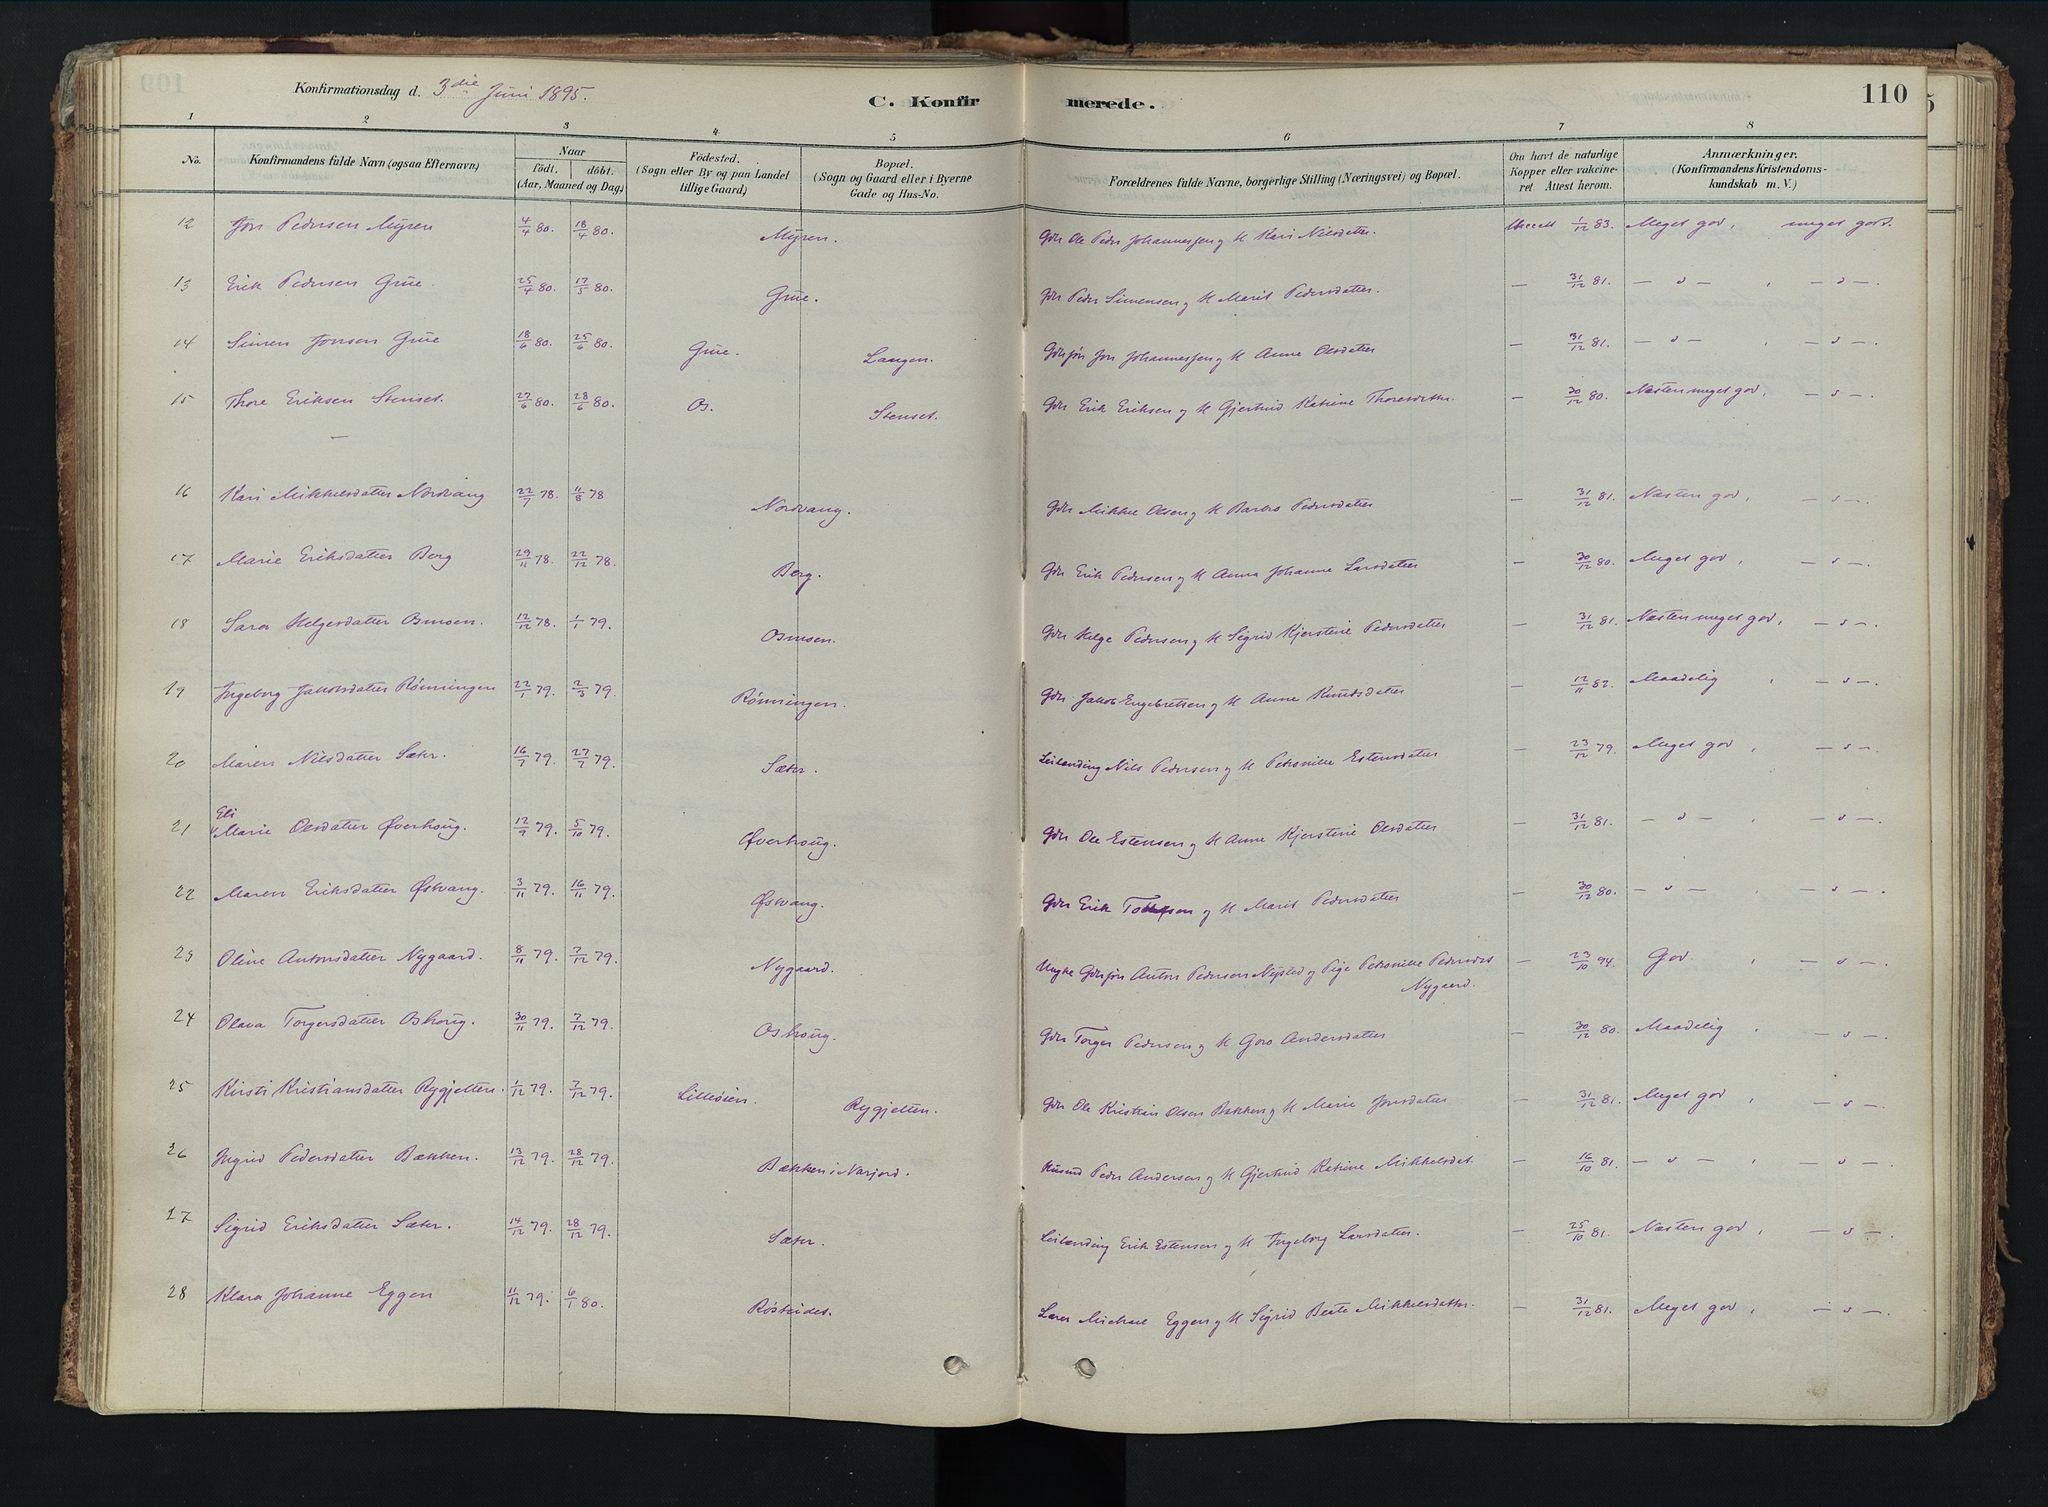 Konfirmationsdag d. 3die Juni 1895.
C. Konfirmerede.
110
1 2 3 4 5 6 7 8
No. Konfirmandens fulde Navn (ogsaa Efternavn) Naar födt. döbt. (Aar, Maaned og Dag) Födested. (Sogn eller By og paa Landet tillige Gaard) Bopæl. (Sogn og Gaard eller i Byerne Gade og Hus-No. Forældrenes fulde Navne, borgerlige Stilling (Næringsvei) og Bopæl. Om havt de naturlige Kopper eller vakcineret Attest herom. Anmærkninger. (Konfirmandens Kristendomskundskab m. V.)
12 Jon Pedersen Myren 4/4 80. 18/4 80. Myren. Gdr Ole Peder Johannessen og H Kari Nilsdatter. 1/12 83. Meget god, meget godt.
13 Erik Pedersen Grue. 25/4 80. 17/5 80. Grue. Gdr Peder Simensen og H Marit Pedersdatter. — 31/12 81. — " — , — " —.
14 Simen Jonsen Grue 18/6 80. 25/6 80. Grue. Langen. Gdrsøn Jon Johannessen og H Anne Olsdatter — 31/12 81. — " — , — " —.
15 Thore Eriksen Stenset. 27/6 80. 28/6 80. Os. Stenset. Gdr Erik Eriksen og H Gjertrud Katrine Thoresdatter. — 30/12 80. Næsten meget god, — " —.
—
16 Kari Mikkelsdatter Nordvang 22/7 78. 11/8 78 Nordvang. Gdr Mikkel Olsen og H Barbro Pedersdatter — 31/12 81. Næsten god, — " —.
17 Marie Eriksdatter Berg 29/11 78. 22/12 78. Berg. Gdr Erik Pedersen og H Anna Johanne Larsdatter — 30/12 80. Meget god, — " —.
18 Sara Helgesdatter Osmoen. 12/12 78. 1/1 79. Osmoen. Gdr Helge Pedersen og H Sigrid Kjerstine Pedersdatter — 31/12 81. Næsten meget god, — " —.
19 Ingeborg Jakobsdatter Rønningen 22/1 79. 2/3 79. Rønningen. Gdr Jakob Engebretsen og H Anne Knudsdatter — 12/11 82. Maadelig , — " —.
20 Maren Nilsdatter Sæter. 16/7 79. 27/7 79. Sæter. Leilænding Nils Pedersen og H Petronille Estensdatter — 23/12 79. Meget god , — " —.
21 Eli Marie Olsdatter Øverhoug. 12/9 79. 5/10 79. Øverhoug. Gdr Ole Estensen og H Anne Kjerstine Olsdatter — 31/12 81. — " — , — " —.
22 Maren Eriksdatter Østvang. 3/11 79. 16/11 79. Østvang. Gdr Erik og H Marit Pedersdatter — 30/12 80. — " — , — " —.
23 Oline Antonsdatter Nygaard. 8/11 79. 7/12 79. Nygaard. Ungk Gdrsøn Anton Pedersen Nysted og Pige Petronille Pedersdat — 23/10 94. God , — " —.
Nygaard.
24 Olava Torgersdatter Oshoug. 30/11 79. 7/12 79. Oshoug. Gdr Torger Pedersen og H Goro Andersdatter — 30/12 80. Maadelig , — " —.
25 Kirsti Kristiansdatter Rygjetten. 1/12 79. 7/12 79. Lilleøien. Rygjetten. Gdr Ole Kristian Olsen Bakken og H Marie Jonsdatter — 31/12 81. Meget god , — " —.
26 Ingrid Pedersdatter Bækken. 13/12 79. 28/12 79. Bækken i Narjord. Husmd Peder Andersen og H Gjertrud Katrine Mikkelsdat. — 16/10 81. — " — , — " —.
27 Sigrid Eriksdatter Sæter. 14/12 79. 28/12 79. Sæter. Leilænding Erik Estensen og H Ingeborg Larsdatter. — 25/10 81. Næsten god , — " —
28 Klara Johanne Eggen 11/12 79. 6/1 80. Røstvidet. Lærer Michael Eggen og H Sigrid Beate Mikkelsdatter. — 31/12 81. Meget god , — " —